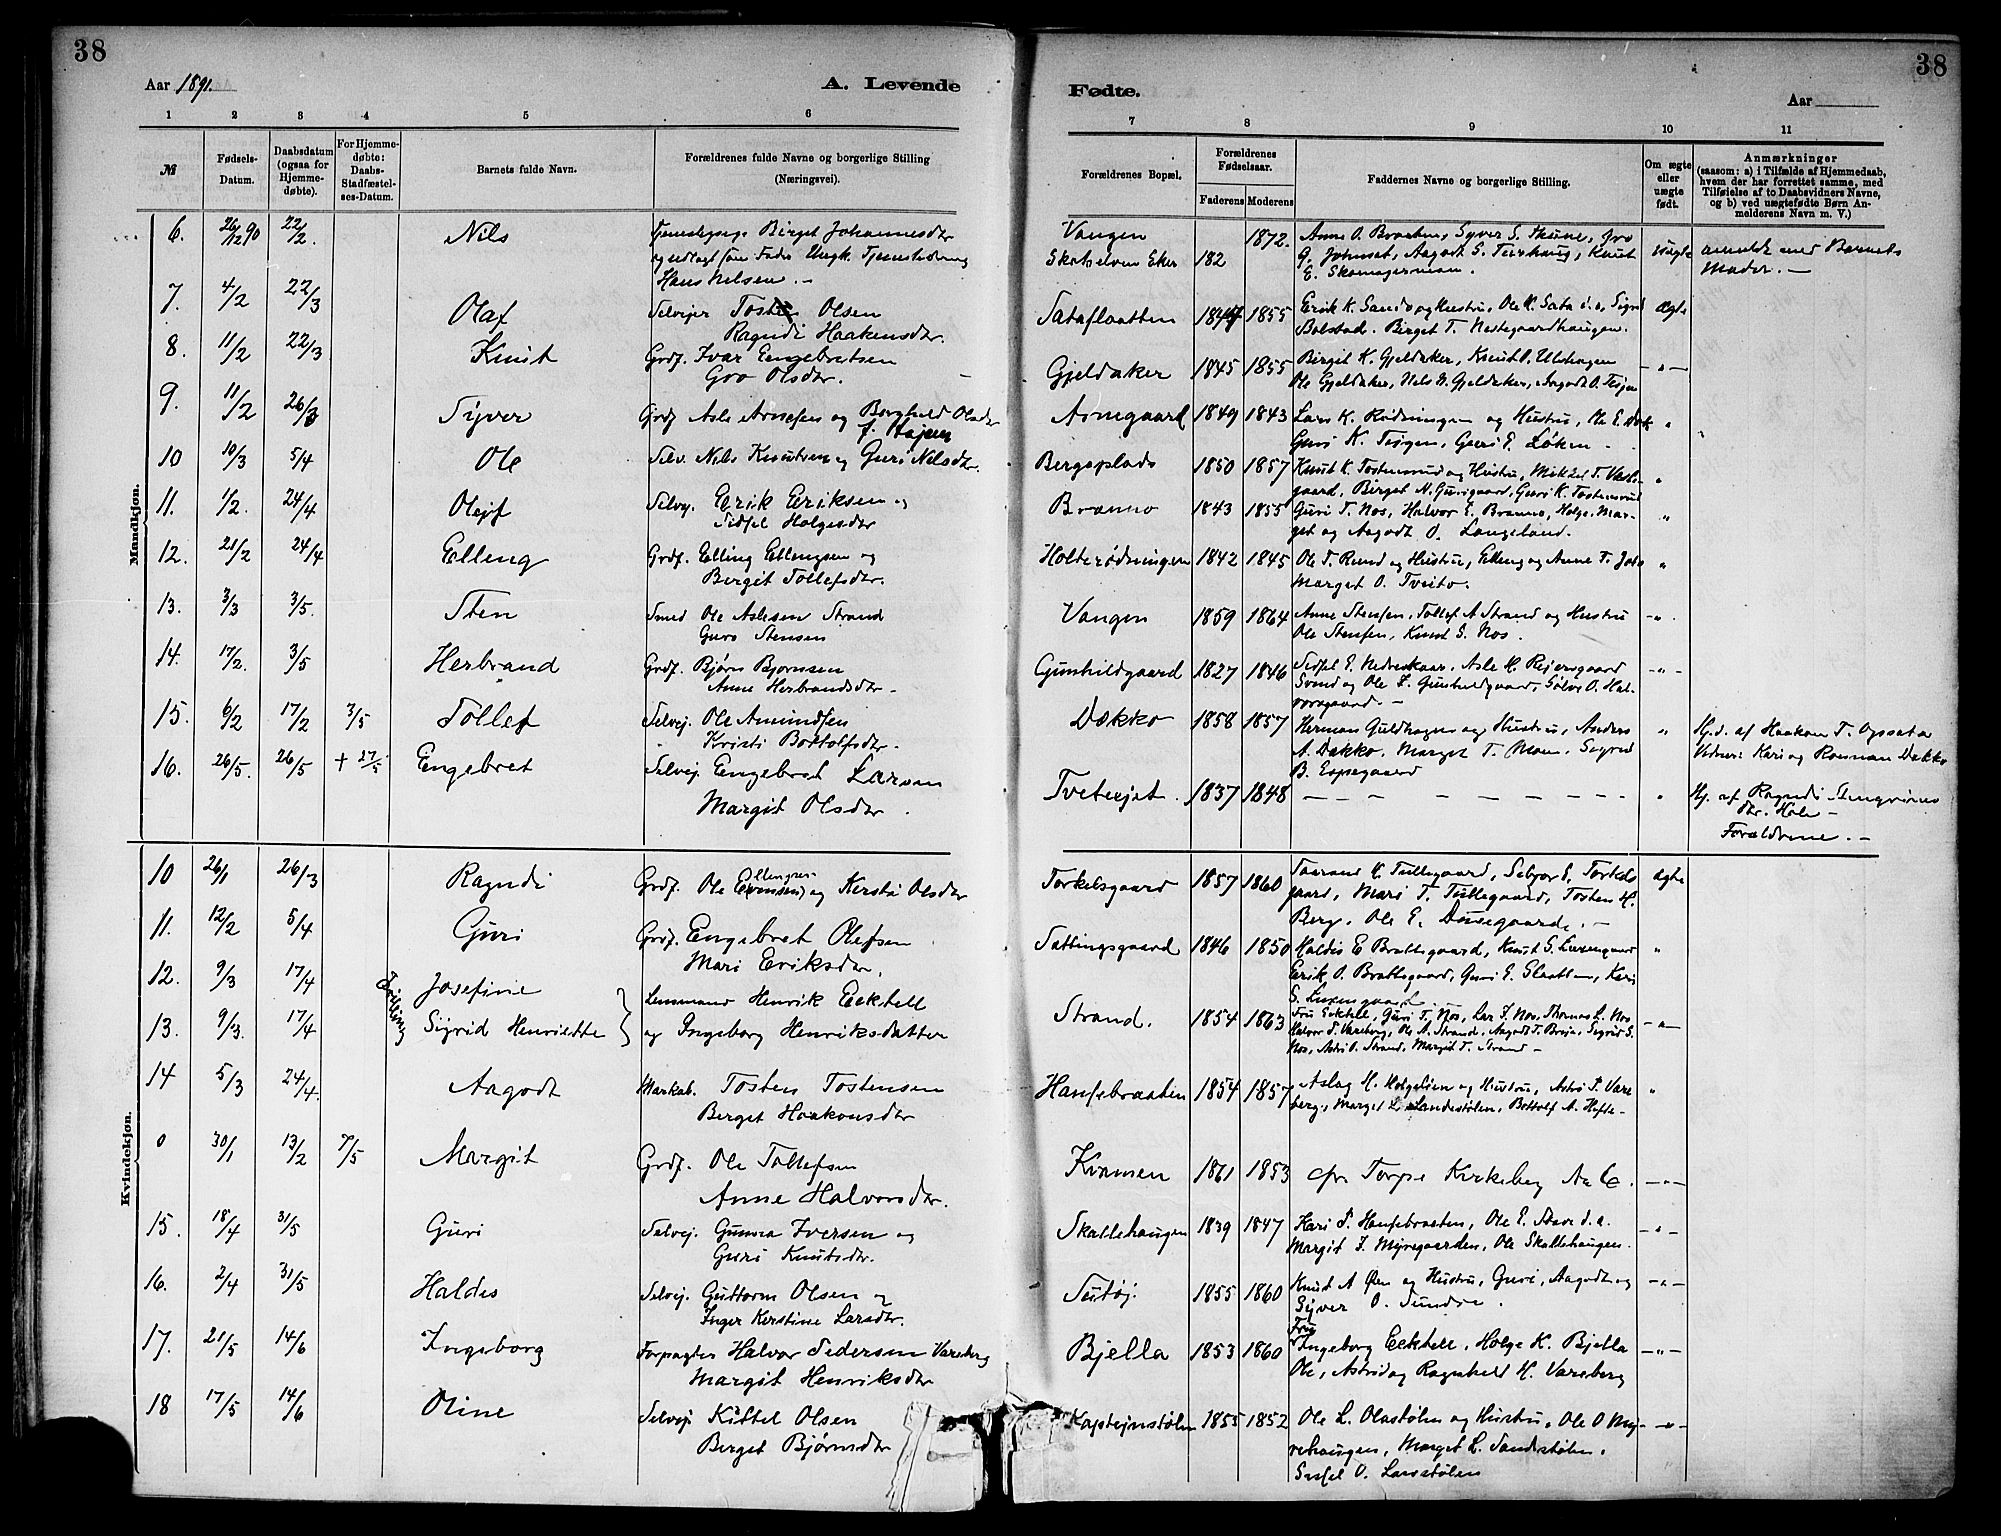 38
38
Aar 1891.
A. Levende
Fødte.
Aar
1 2 3 4 5 6
7 8 9 10 11
№
Fødsels-
Datum.
Daabsdatum
(ogsaa for
Hjemme-
døbte).
For Hjemme-
døbte:
Daabs-
Stadfæstel-
ses-Datum.
Barnets fulde Navn.
Forældrenes fulde Navne og borgerlige Stilling
(Næringsvei).
Forældrenes Bopæl.
Forældrenes
Fødselsaar.
Faderens Moderens
Faddernes Navne og borgerlige Stilling.
Om ægte
eller
uægte
født.
Anmærkninger
(saasom: a) i Tilfælde af Hjemmedaab,
hvem der har forrettet samme, med
Tilføielse af to Daabsvidners Navne,
og b) ved uægtefødte Børn An-
melderens Navn m. V.)
Mandkjøn.
6. 26/12 90 22/2. Nils
Birget Johannesdtr
Hans Nilsen. -
Vangen
Skotselven Eker 182 1872.
Anne O. Braaten, Syver S.
Uægte
Barnets
Moder. -
7. 4/2 22/3 Olaf Selvejer Olsen
Ragndi Haakensdtr.
Satafloatten 1855
Erik K. og Hustru, Ole K. Sata d.a., Sigrid
Bolstad. Birget T. Nestegaardhaugen.
Ægte
8. 11/2 22/3 Knut Grdf. Ivar Engebretsen
Gro Olsdtr.
Gjeldaker 1845 1855
Birgit K. Gjeldaker, Knut O. Ulshagen
Ole Gjeldaker, Nils G. Gjeldaker, Aagodt O.
- " -
9. 11/2 26/3 Syver Grdf Asle Arnesen og Borghild Olsdtr
Arnegaard 1849 1843
Lars K. Rødningen og Hustru, Ole E. Bæk
Guri K. Guri E. Løken -
"
10 10/3 5/4 Ole Selv. Nils Knutsen og Guri Nilsdtr.
Bergsplads 1850 1857
Knut K. Tostensrud og Hustru, Mikkel T. Vesle-
gaard, Birget N. Gurigaard, Guri K. Tostensrud
"
11. 1/2. 24/4 Olejf Selvej. Erik Eriksen og
Sidsel Holgesdtr
Branno 1843 1855
Guri T. Nos, Halvor E. Branno, Holge, Mar-
get og Aagodt O. Langeland.
"
12. 21/2 24/4 Elling Grdf. Elling Ellingsen og
Bergit Tollefsdtr.
Holterødningen 1842 1845
Ole T. Rund og Hustru, Elling og Anne T.
Marget O. Tveito.
"
13. 3/3 3/5. Sten Smed Ole Aslesen Strand
Guro Stensen
Vangen 1859 1864
Anne Stensen, Tollef A Strand og Hustru
Ole Stensen, Knut S. Nos.
- " -
14. 17/2. 3/5 Herbrand Grdf. Bjørn Bjørnsen
Anne Herbrandsdtr -
Gunhildgaard 1827 1846
Sidsel E. Nedreskaar, Asle H. Rejersgaard
Svend og Ole L. Gunhildgaard, Sølve O. Hal-
vorsgaard. -
- " -
15. 6/2 17/2 3/5 Tollef Selvej. Ole Amundsen
Kristi Bottolfsdtr.
Dækko 1858 1857
Herman Guldhagen og Hustru, Anders
A. Dækko, Marget T. Moen, Sigrid
B. Espegaard
"
Hj.d. af Haakon T. Opsata
Vidner: Kari og Dækko
16. 26/5. 26/5 + 27/5 Engebret Selvej. Engebret Larsen
Margit Olsdtr.
Tvetejet. 1837 1848 - - - - - - - "
Hj. af Ragndi
dtr. Hole -
Forældrene. -
Kvindekjøn.
10 26/1 26/3 Ragndi Grdf. Ole Ellingsen og Kersti Olsdtr
Torkelsgaard 1857 1860
Taarand K. Tullegaard, Sebjør E. Torkels-
gaard, Mari T. Tullegaard, Tosten H.
Berg, Ole E. -
Ægte
11. 12/2 5/4 Guri Grdf. Engebret Olefsen
Mari Eriksdtr.
Sattingsgaard 1846 1850
Haldis E Brattegaard, Knut S.
Erik O. Brattegaard, Guri E. Slaatten, Kari
S.
"
12. 9/3 17/4 Tvilling Josefine Lensmand Henrik Eckhell
13. 9/3. 17/4 Sigrid Henriette og Ingeborg Henriksdatter
Strand. 1854 1863
Fru Eckhell, Guri T. Nos, Lar J. Nos. Thomas L. Nos
Halvor P. Vareberg, Ole A. Strand, Aagodt T. Sigrid S.
Nos, Astri O. Strand, Margit T. Strand -
- " -
14 5/3 24/4. Aagodt Markab. Tosten Tostensen
Berget Haakonsdtr
Hansebraaten 1854 1857
Aslag H. Holgelien og Hustru, Astri P. Vare-
berg, Marget L. Landestølen, Bottolf A. Hefte -
"
0 30/1 13/2 7/5 Margit Grdf. Ole Tollefsen
Anne Halvorsdtr.
Kvamen 1861 1853 cfr. Torpe Kirkebog A 6. - " -
15. 18/4 31/5 Guri Selvej. Gunnar Iversen og
Guri Knutsdtr.
Skattehaugen 1839 1847
Kari T. Hansebraaten, Ole E. d.a.
Margit I. Myregaarden, Ole Skattehaugen.
- " -
16. 2/4 31/5 Haldis Selvej. Guttorm Olsen og
Inger Kerstine Larsdtr.
1855 1860
Knut A Øen og Hustru, Guri, Aagodt og
Syver O. Sundre.
- " -
17. 21/5 14/6 Ingeborg Forpagter Halvor Pedersen Vareberg
Margit Henriksdtr
Bjella 1853 1860
Fru
Ingeborg Eckhell, Holge K. Bjella
Ole, Astrid og Ragnhild H. Vareberg
- " -
18 17/5 14/6 Oline Selvej Kittel Olsen
Berget Bjørnsdtr
Kaptejnstølen 1855 1852
Ole L. Olastølen og Hustru, Ole O My-
rehaugen, Marget L. Sandestølen.
Sissel O. Larsstølen
- " -